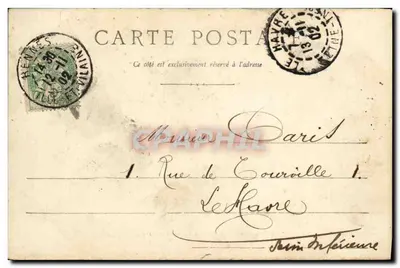 CARTE POSTA
Ce côté est exclusivement réservé à l'adresse
RENNES
12 -11
02
LE HAVRE
13 -11
02
CPAPHIL.COM
Monsieur Paris
1. Rue de Tourville 1.
Le Havre
Seine Inférieure